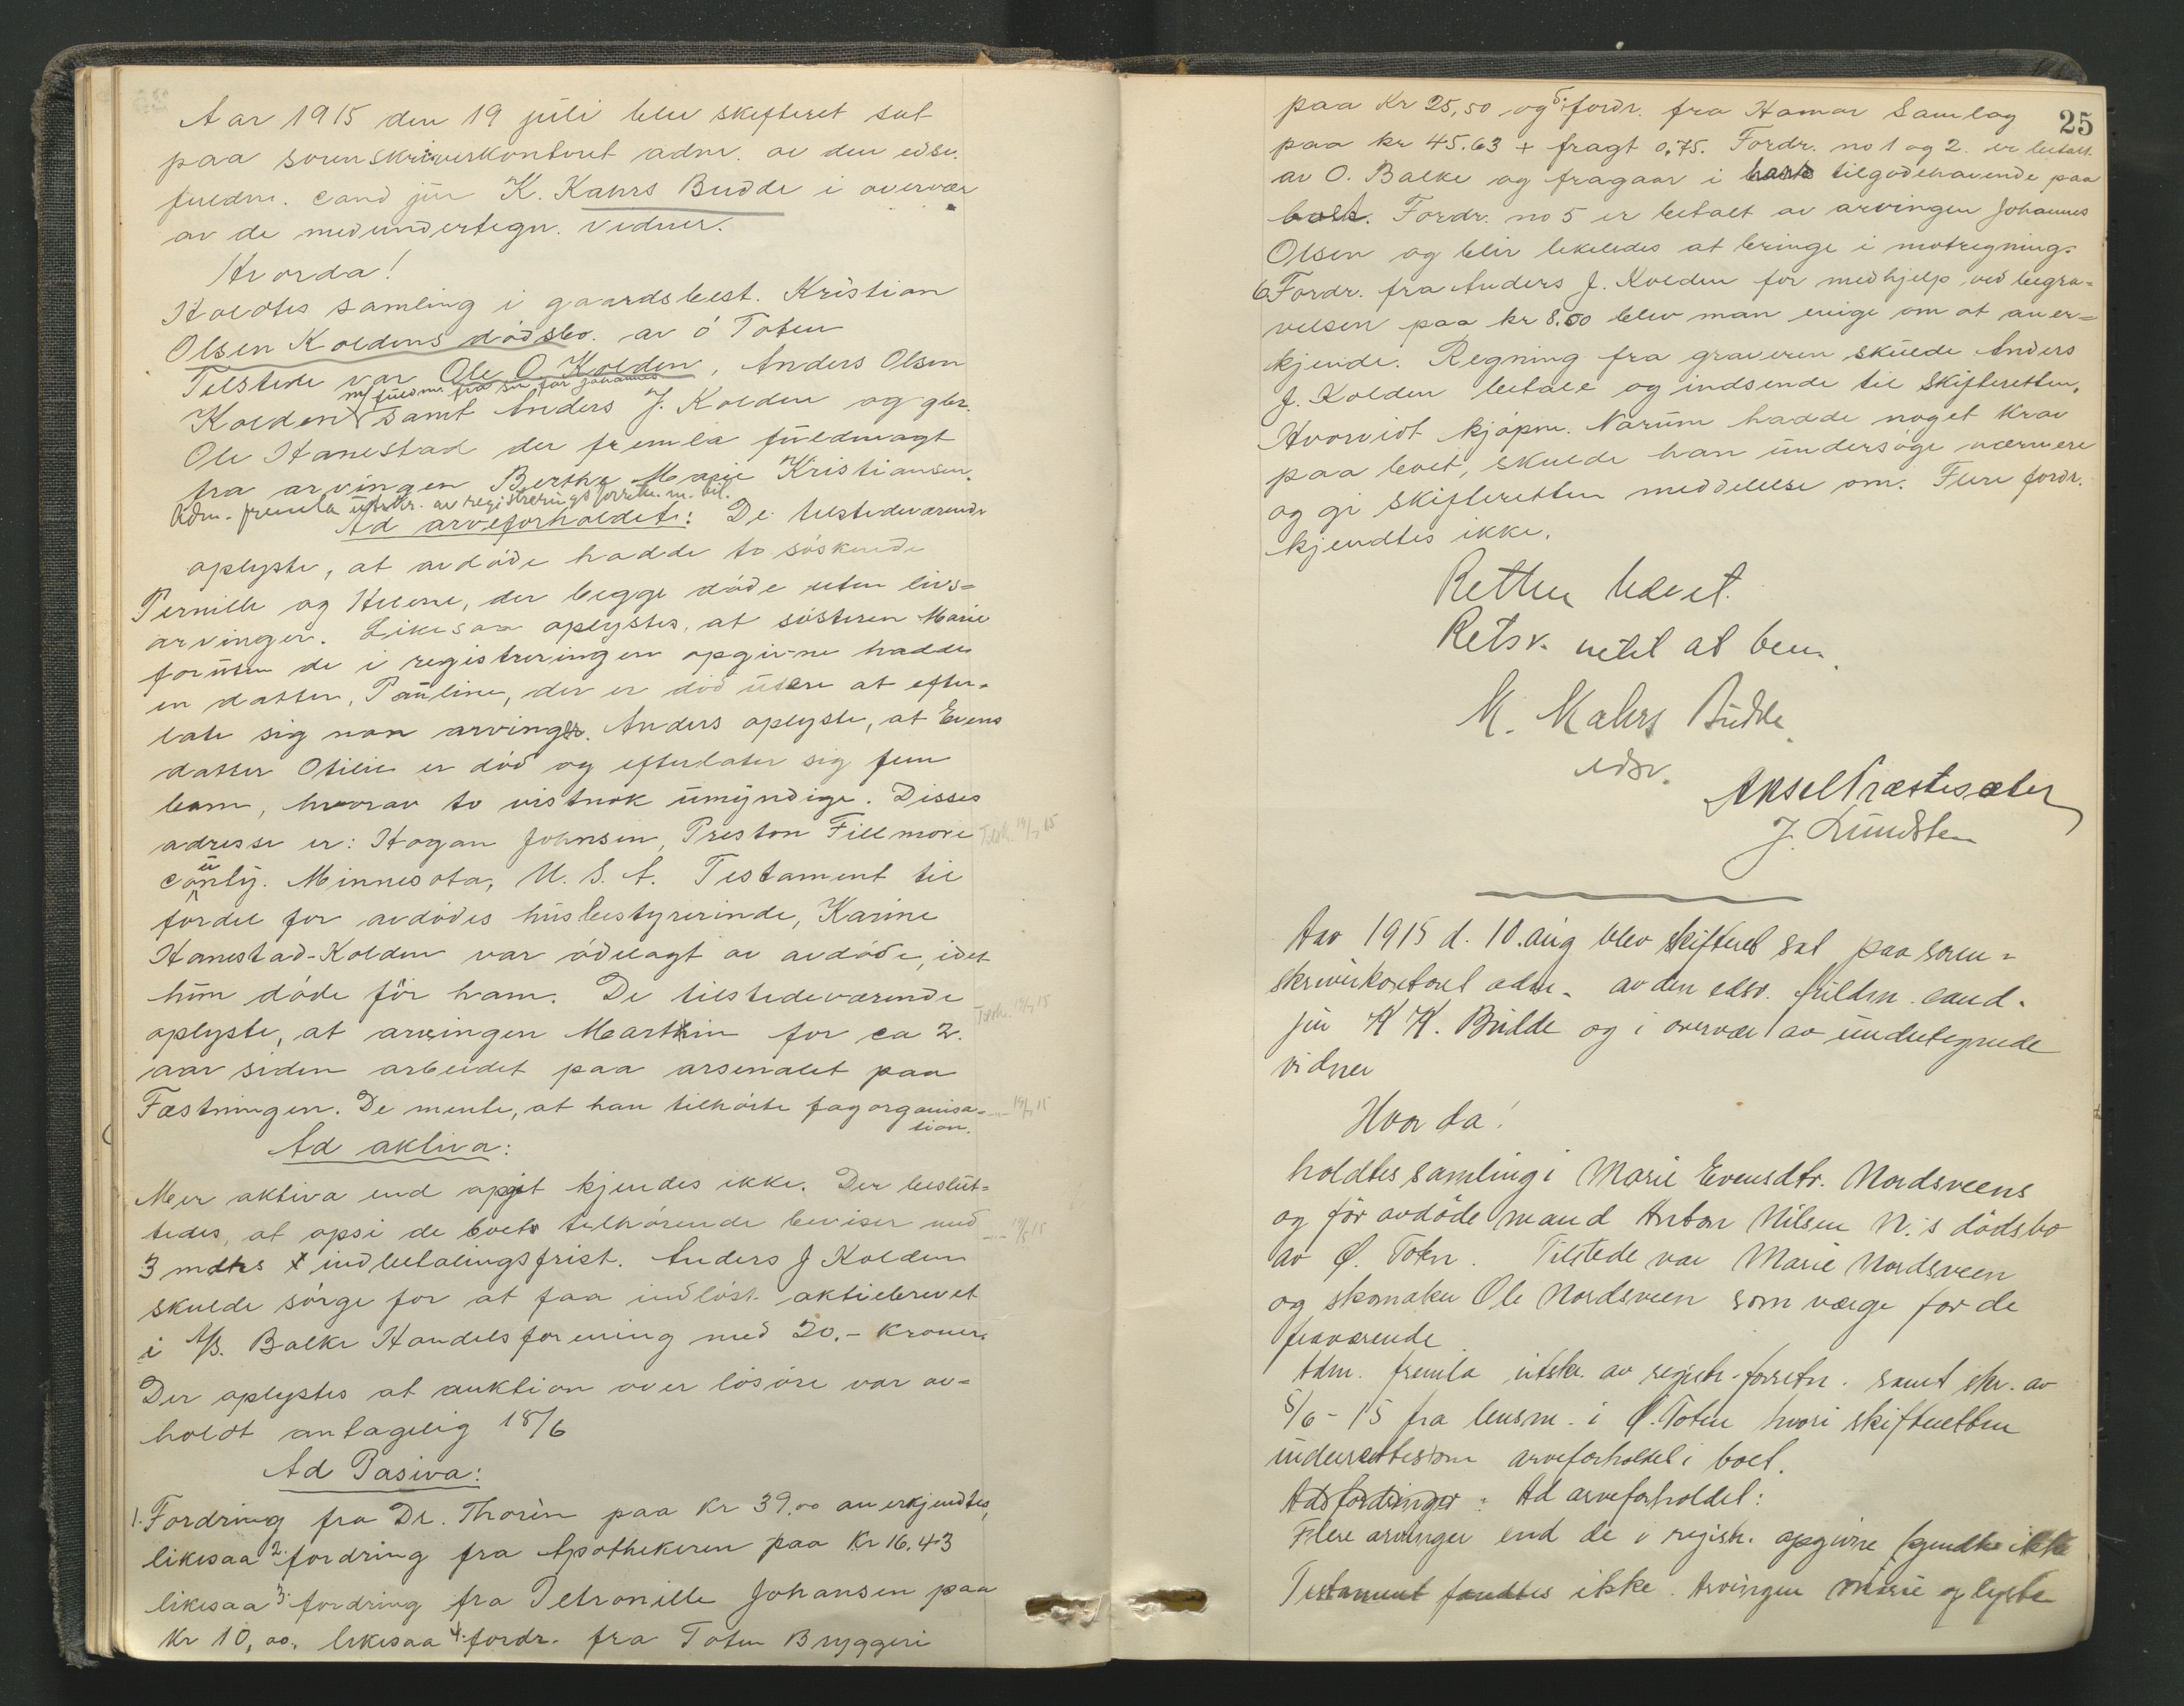 Aar 1915 den 19 juli blev skifteret sat
paa sorenskriverkontoret adm. av den edsv.
fuldm. cand jur K. Kahrs Budde i overvær
av de medundertegn. vidner.
Hvorda!
Holdtes samling i gaardsbest. Kristian
Olsen Koldens dødsbo. av Ø Toten
Tilstede var Ole O. Kolden, Anders Olsen
m/ fuldm. fra sin far Johannes
Kolden samt Anders J. Kolden og gbr.
Ole Hanestad der fremla fuldmagt
fra arvingen Berthe Marie Kristiansen.
Adm. fremla utskr. av registreringsforretn. m. bil.
Ad arveforholdet: De tilstedeværende
oplyste, at avdøde hadde to søskende
Pernille og Helene, der begge døde uten livs=
arvinger. Likesaa oplystes, at søsteren Marie
foruten de i registreringen opgivne hadde
en datter, Pauline, der er død uten at efter-
late sig non arvinger. Anders oplyste, at Evens
datter Otilie er død og efterlater sig fem
barn, hvorav to vistnok umyndige. Disses
adresse er: Hogan Johnsen, Preston Fillmore
Tilsk. 19/7 15
county. Minnesota, U. S. A. Testament til
fordel for avdødes husbestyrerinde, Karine
Hanestad-Kolden var ødelagt av avdøde, idet
hun døde før ham. De tilstedeværende
Tilsk. 19/7 15
oplyste, at arvingen Marthin for ca 2.
aar siden arbeidet paa arsenalet paa
Fæstningen. De mente, at han tilhørte fagorganisa-
tion.
19/7 15
Ad aktiva:
Mer aktiva end opgit kjendes ikke. Der beslut=
tedes, at opsi de boets tilhørende beviser med
3 mdrs indbetalingsfrist. Anders J Kolden
skulde sørge for at faa indløst aktiebrevet
i A/S. Balke Handelsforening med 20.- kroner.
Der oplystes at auktion over løsøre var av=
holdt antagelig 18/6
Ad Pasiva:
1. Fordring fra Dr. Thorén paa kr 39.00 anerkjendtes,
likesaa 2. fordring fra Apothekeren paa kr 16.43
likesaa 3. fordring fra Petronille Johansen paa
kr 10,00., likesaa 4. fordr. fra Toten Bryggeri
25
paa kr 25,50 og 5. fordr. fra Hamar Samlag
paa kr 45.63 + fragt 0.75. Fordr. no 1 og 2. er betalt
av O. Balke og fragaar i hans tilgodehavende paa
boet. Fordr. no 5 er betalt av arvingen Johannes
Olsen og blir likeledes at bringe i motregning.
6 Fordr. fra Anders J. Kolden for medhjelp ved begra=
velsen paa kr 8.00 blev man enige om at aner=
kjende. Regning fra graveren skulde Anders
J. Kolden betale og indsende til skifteretten.
Hvorvidt kjøpm. Narum hadde noget krav
paa boet, skulde han undersøge nærmere
og gi skifteretten meddelelse om. Flere fordr.
kjendtes ikke.
Retten hævet.
Retsv. intet at bem.
K. Kahrs Budde.
edsv.
Aksel Præstesæter
J. Lundsten
Aar 1915 d. 10. aug blev skifteret sat paa soren=
skriverkontoret adm. av den edsv. fuldm. cand.
jur K K. Budde og i overvær av undertegnede
vidner
Hvorda!
holdtes samling i Marie Evensdtr. Nordsveens
og før avdøde mand Anton Nilsen N.'s dødsbo
av Ø. Toten. Tilstede var Marie Nordsveen
og skomaker Ole Nordsveen som værge for de
fraværende
Adm. fremla utskr. av registr.forretn. samt skr. av
5/6 - 15 fra lensm. i Ø. Toten hvori skifteretten
underrettes om arveforholdet i boet.
Ad fordringer: Ad arveforholdet:
Flere arvinger end de i registr. opgivne kjendtes ikke
Testament fandtes ikke. Arvingen Marie oplyste